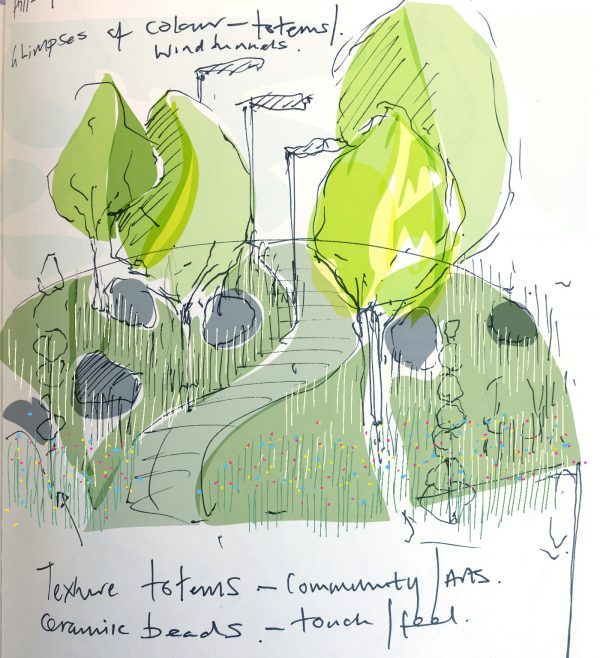 Glimpses of colour – totems/.
Wind tunnels.
Texture totems – Community/Arts.
Ceramic beads. – touch/feel.